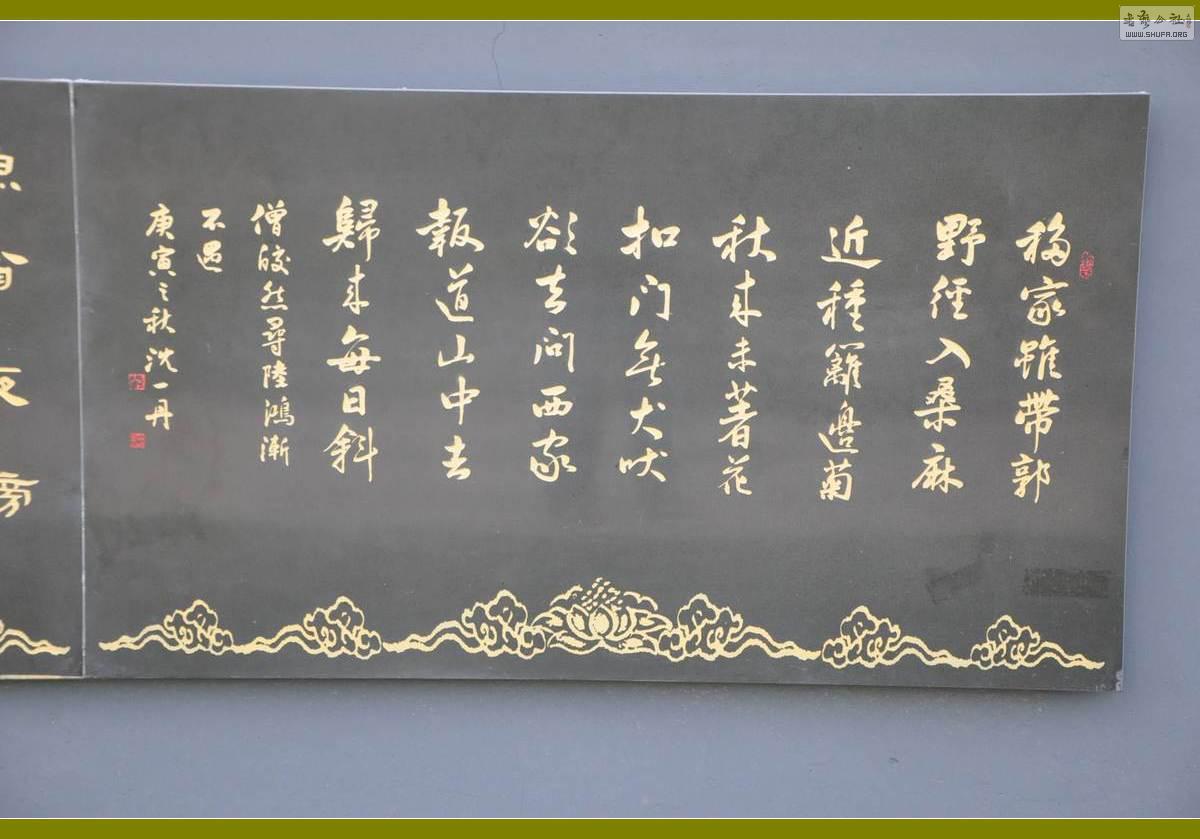 移家雖帶郭
野徑入桑麻
近種籬邊菊
秋来未著花
扣门無犬吠
欲去问西家
報道山中去
歸来每日斜
僧皎然尋陸鴻漸
不遇
庚寅之秋沈一丹
WWW.SHUFA.ORG